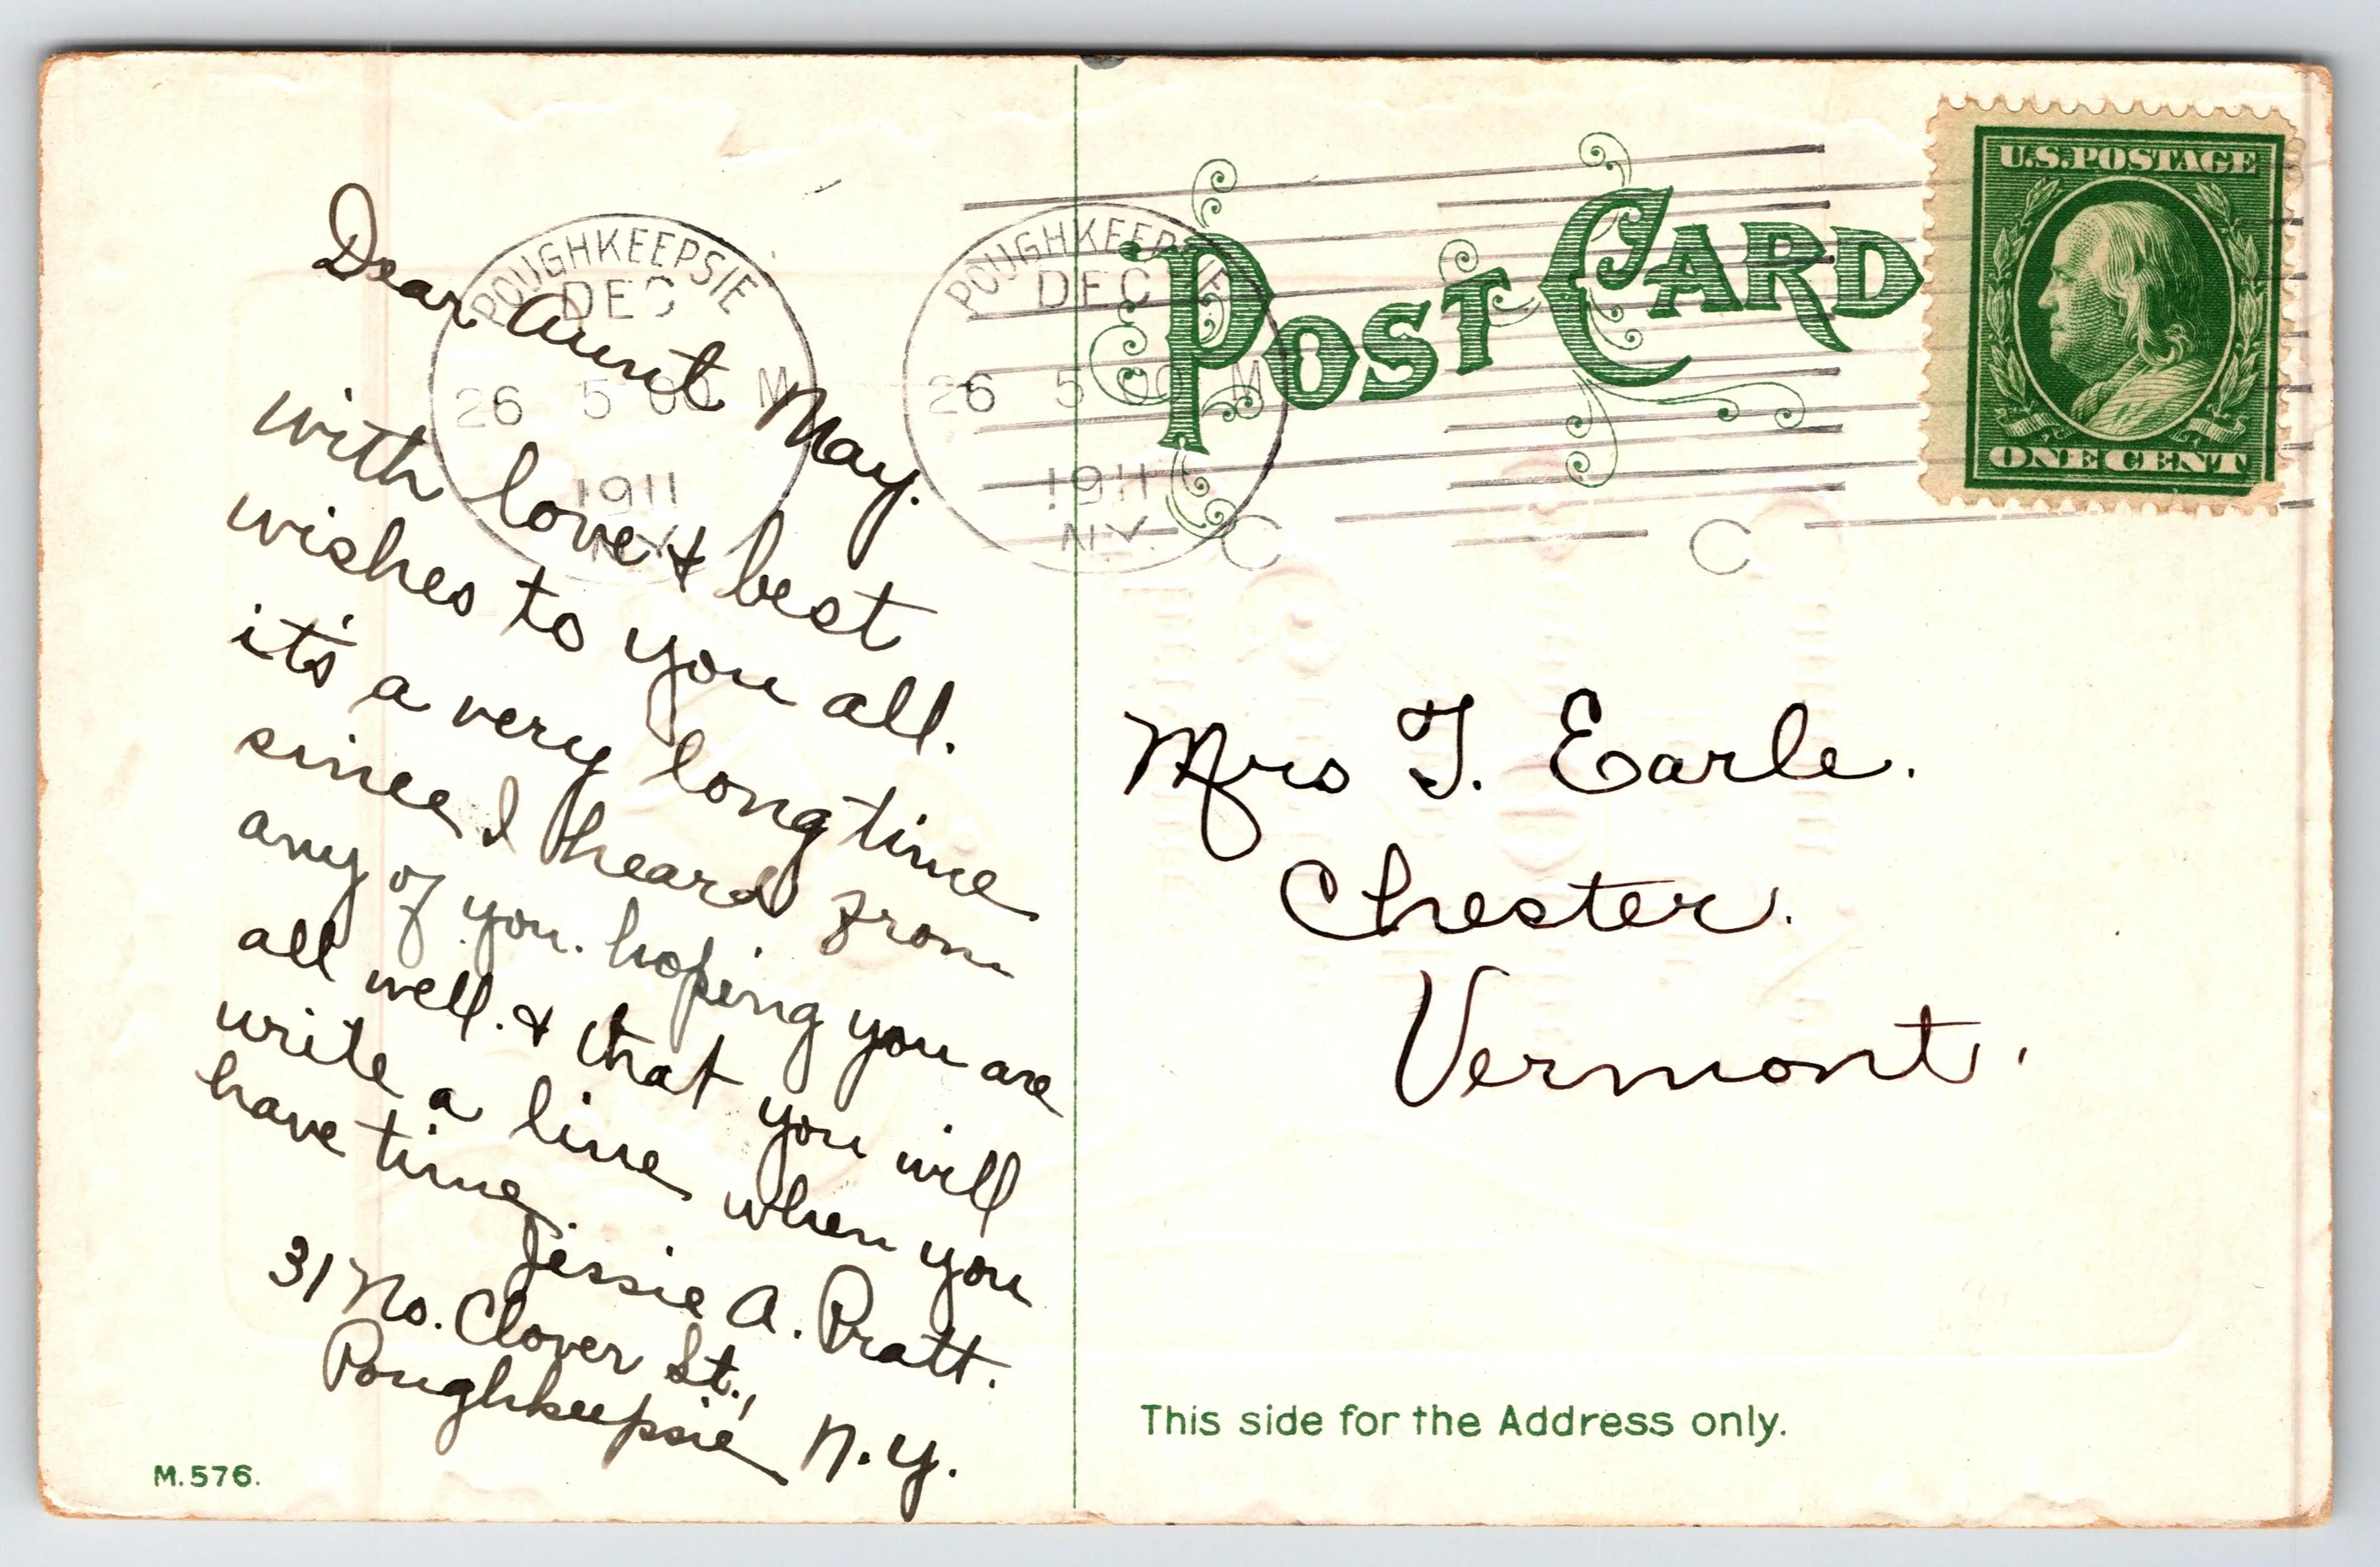 Dear Aunt May.
with love & best
wishes to you all.
it's a very long time
since I heard from
any of you. hoping you are
all well. & that you will
write a line when you
have time
Jessie A. Pratt.
31 No. Clover St.,
Poughkeepsie, N.Y.
M.576.
POUGHKEEPSIE
DEC
26 5 00 M
1911
N.Y.
POUGHKEEPSIE
DEC
26 5 00 M
1911
N.Y.
C
C
POST CARD
U.S.POSTAGE
ONE CENT
Mrs T. Earle.
Chester.
Vermont.
This side for the Address only.